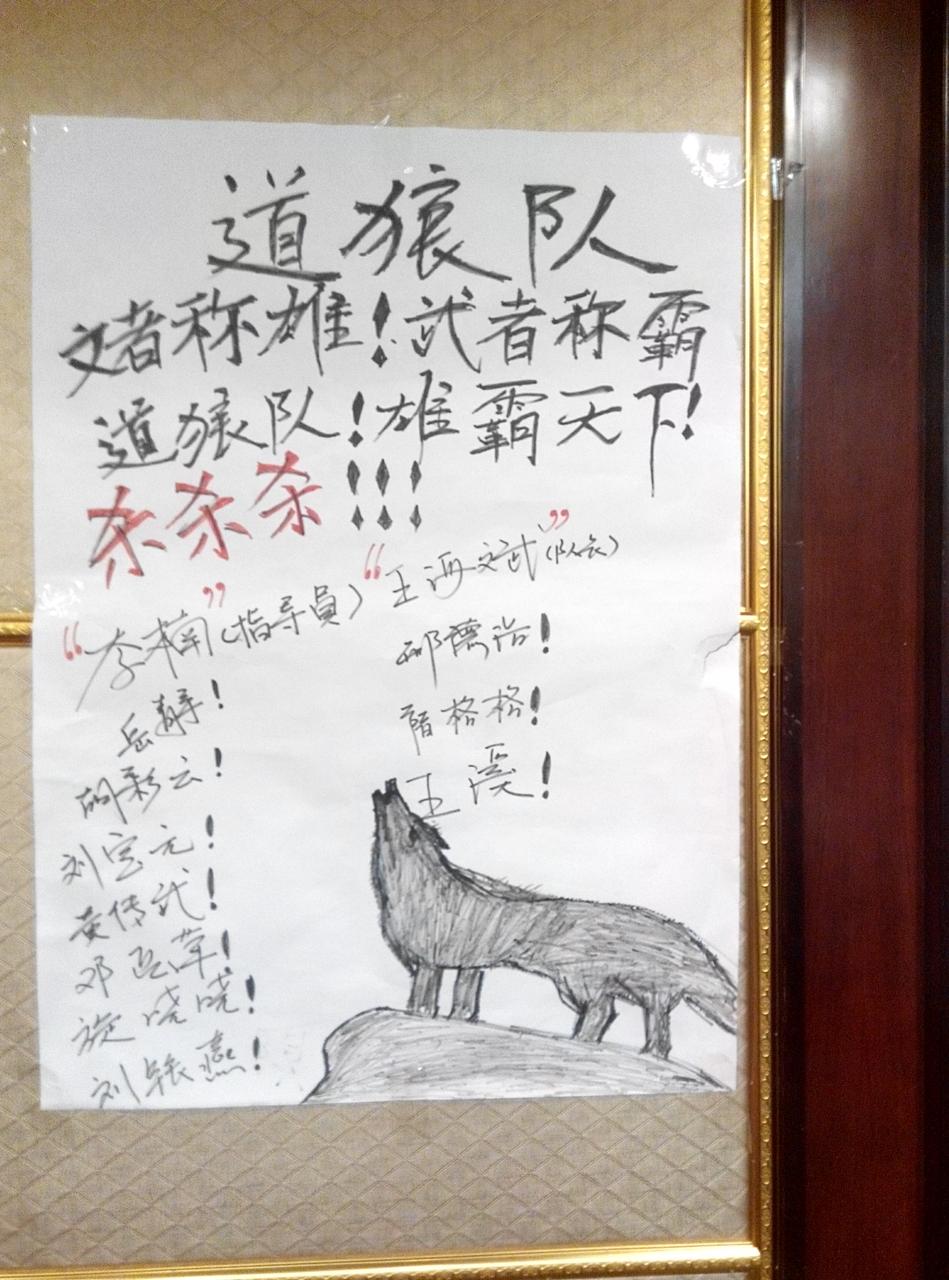 道狼队
文者称雄!武者称霸
道狼队!雄霸天下!
杀杀杀!!!
“李楠”(指导員)
“王海斌”(队长)
岳静!
胡彩云!
刘宝元!
黄传武!
邓岳草!
旋晓晓!
刘轶燕!
邱德浩!
格格!
王溪!